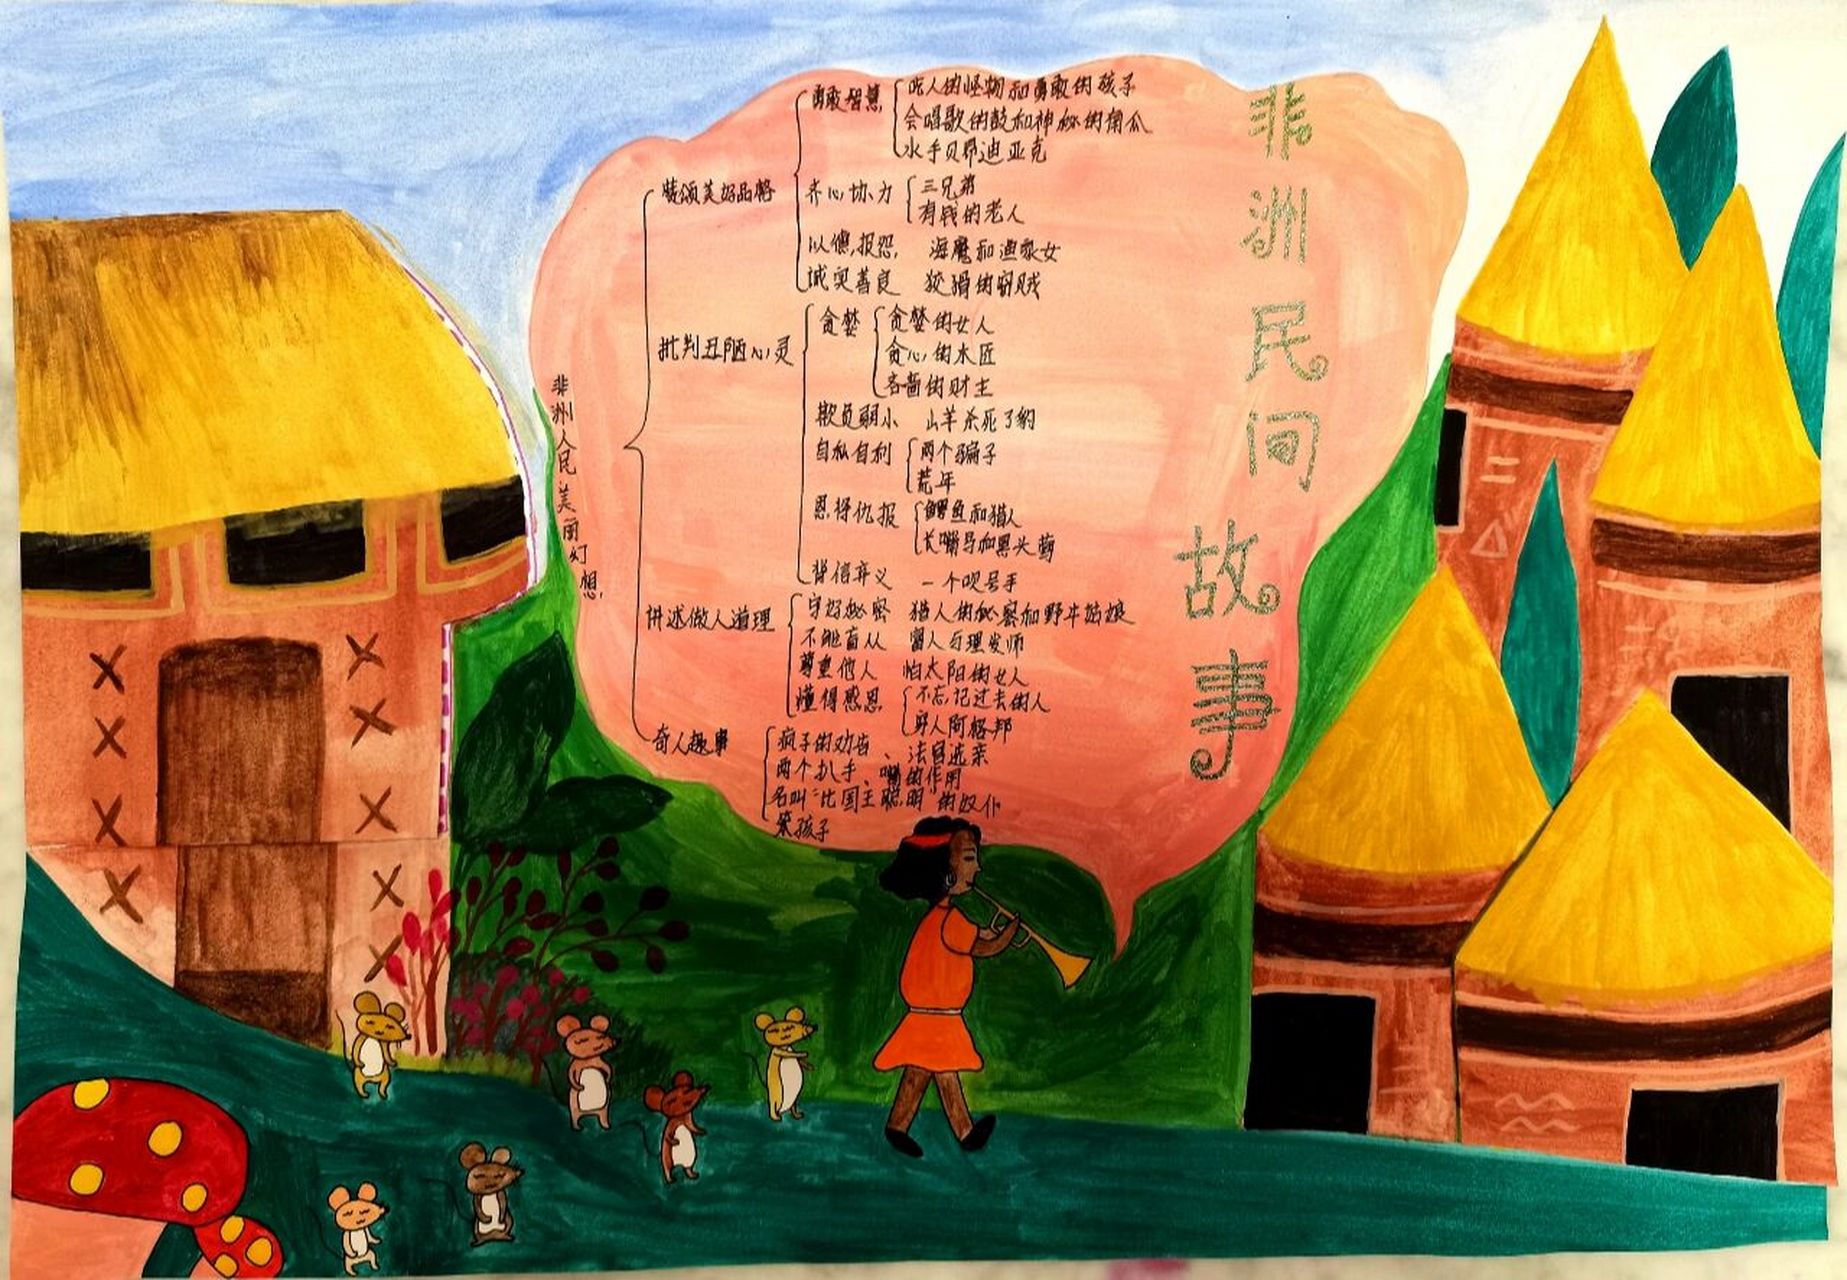 非洲民间故事
非洲人民美丽幻想
赞颂美好品格
勇敢智慧
吃人的怪物和勇敢的孩子
会唱歌的鼓和神秘的南瓜
水手贝希迪亚克
齐心协力
三兄弟
有钱的老人
以德报怨 海魔和渔家女
诚实善良 狡猾的窃贼
批判丑陋心灵
贪婪
贪婪的女人
贪心的木匠
吝啬的财主
欺负弱小 山羊杀死了豹
自私自利
两个骗子
荒年
恩将仇报
鳄鱼和猎人
长嘴鸟和黑头莺
背信弃义 一个吹号手
讲述做人道理
守好秘密 猎人的秘密和野牛姑娘
不能盲从 富人与理发师
尊重他人 怕太阳的女人
懂得感恩
不忘记过去的人
穷人阿格邦
奇人趣事
疯子的劝告、法官选亲
两个扒手、嘴的作用
名叫“比国王聪明”的奴仆
笨孩子